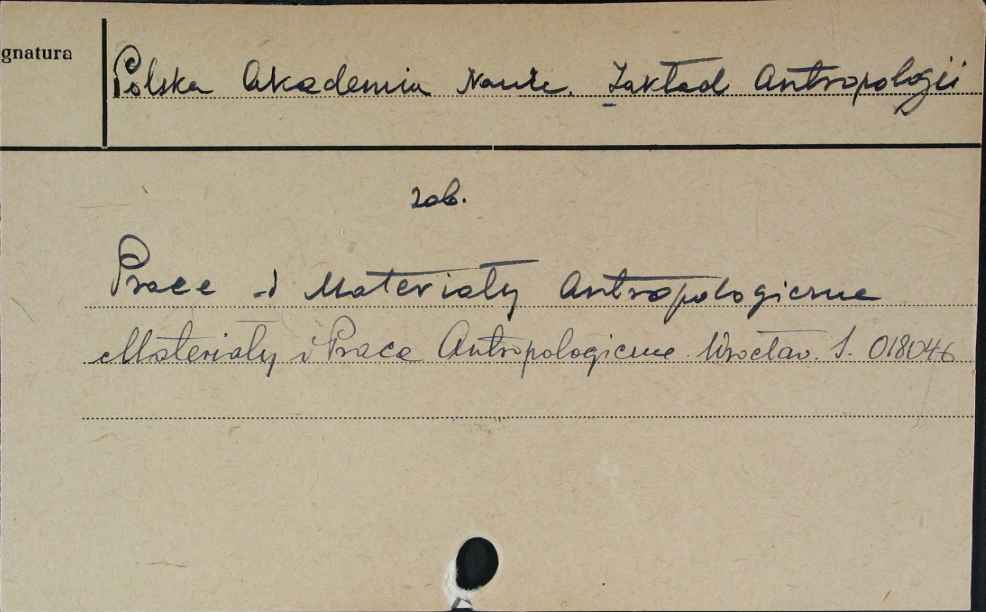 gnatura
Polska Akademia Nauk. Zakład Antropologii
zob.
Prace i Materiały Antropologiczne
Materiały i Prace Antropologiczne. Wrocław. S. 018046